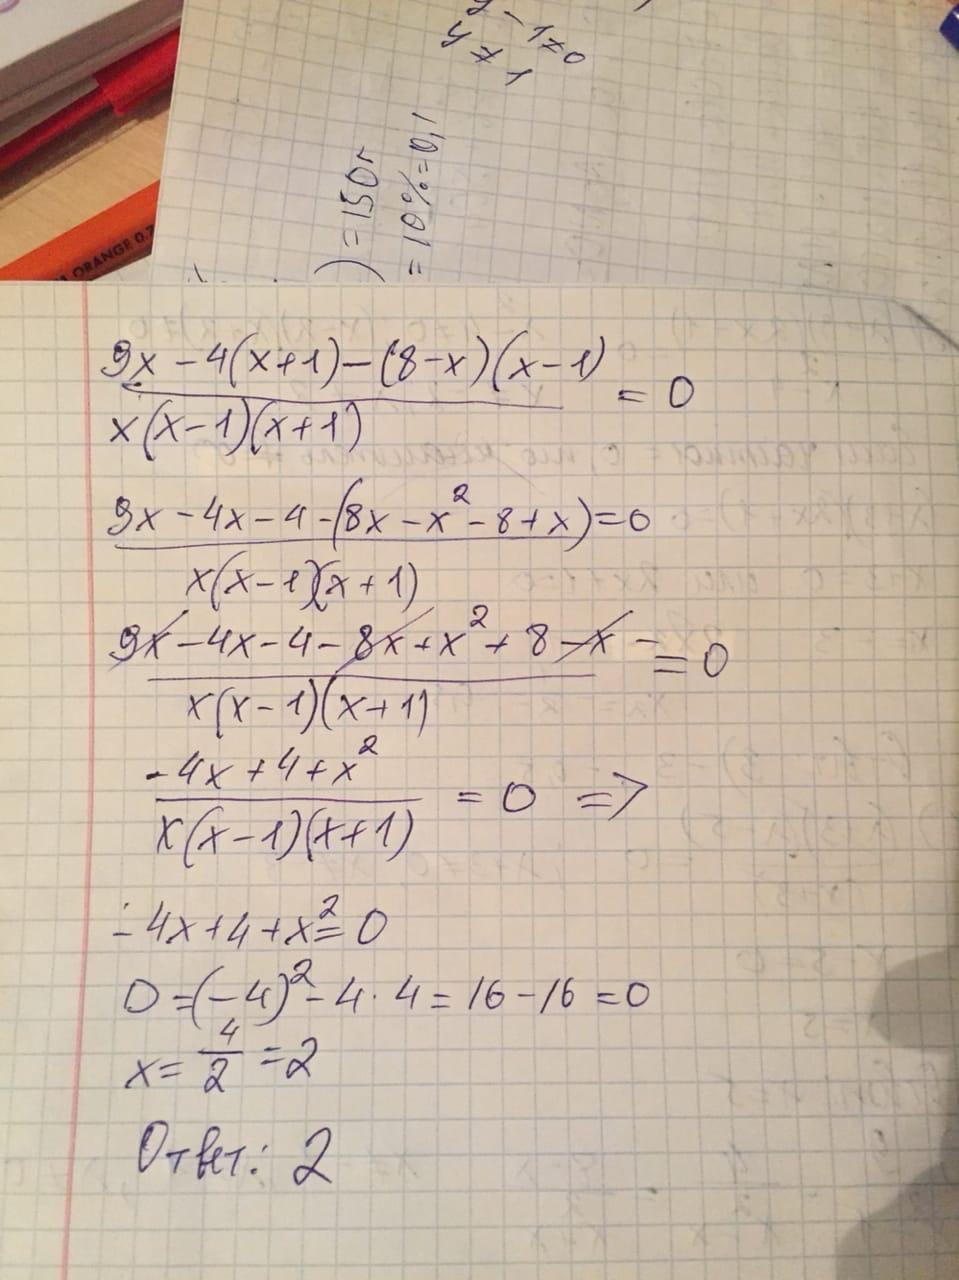 y - 1 ≠ 0
y ≠ 1
) = 150г
= 10% = 0,1
ORANGE 0.7
9x - 4(x+1) - (8-x)(x-1)
x(x-1)(x+1)
= 0
9x - 4x - 4 - (8x - x² - 8 + x) = 0
x(x-1)(x+1)
9x - 4x - 4 - 8x + x² + 8 - x - = 0
x(x-1)(x+1)
-4x + 4 + x²
x(x-1)(x+1)
= 0 =>
-4x + 4 + x² = 0
D = (-4)² - 4 · 4 = 16 - 16 = 0
x = 4/2 = 2
Ответ: 2